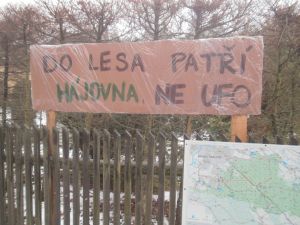 DO LESA PATŘÍ
HÁJOVNA, NE UFO